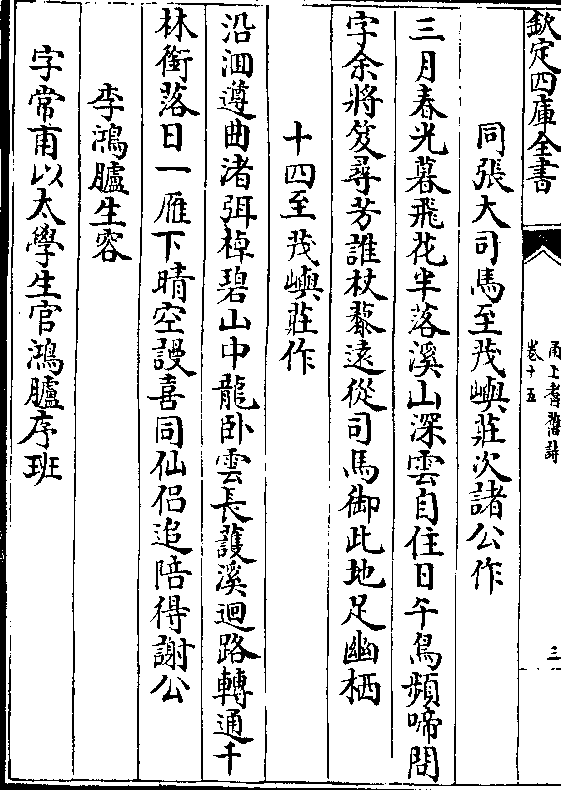 欽定四庫全書
甬上耆舊詩
卷十五
三
同張大司馬至茂嶼莊次諸公作
三月春光暮飛花半落溪山深雲自住日午鳥頻啼問
字余將笈尋芳誰杖藜遠從司馬御此地足幽栖
十四至茂嶼莊作
沿洄遵曲渚弭棹碧山中龍卧雲長護溪迴路轉通千
林銜落日一雁下晴空謾喜同仙侣追陪得謝公
李鴻臚生容
字常甫以太學生官鴻臚序班